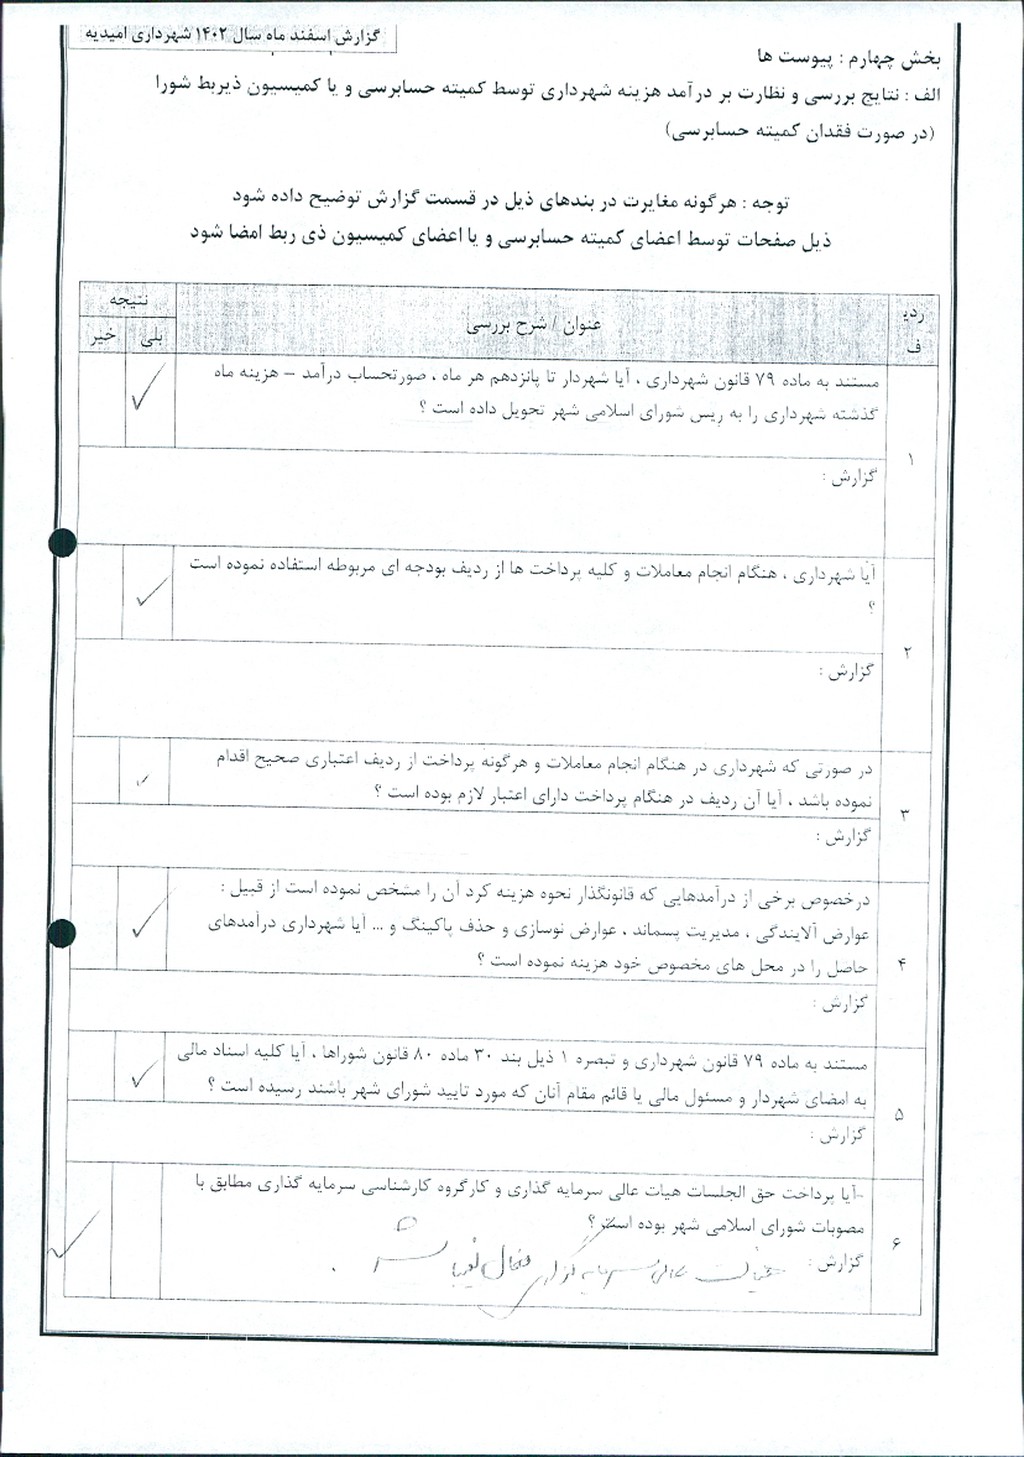 گزارش اسفند ماه سال ۱۴۰۲ شهرداری امیدیه
بخش چهارم : پیوست ها
الف : نتایج بررسی و نظارت بر درآمد هزینه شهرداری توسط کمیته حسابرسی و یا کمیسیون ذیربط شورا
(در صورت فقدان کمیته حسابرسی)
توجه : هرگونه مغایرت در بندهای ذیل در قسمت گزارش توضیح داده شود
ذیل صفحات توسط اعضای کمیته حسابرسی و یا اعضای کمیسیون ذی ربط امضا شود
ردیف
عنوان / شرح بررسی
نتیجه
بلی
خیر
۱
مستند به ماده ۷۹ قانون شهرداری ، آیا شهردار تا پانزدهم هر ماه ، صورتحساب درآمد – هزینه ماه
گذشته شهرداری را به ریس شورای اسلامی شهر تحویل داده است ؟
گزارش :
۲
آیا شهرداری ، هنگام انجام معاملات و کلیه پرداخت ها از ردیف بودجه ای مربوطه استفاده نموده است
؟
گزارش :
۳
در صورتی که شهرداری در هنگام انجام معاملات و هرگونه پرداخت از ردیف اعتباری صحیح اقدام
نموده باشد ، آیا آن ردیف در هنگام پرداخت دارای اعتبار لازم بوده است ؟
گزارش :
۴
درخصوص برخی از درآمدهایی که قانونگذار نحوه هزینه کرد آن را مشخص نموده است از قبیل :
عوارض آلایندگی ، مدیریت پسماند ، عوارض نوسازی و حذف پاکینگ و ... آیا شهرداری درآمدهای
حاصل را در محل های مخصوص خود هزینه نموده است ؟
گزارش :
۵
مستند به ماده ۷۹ قانون شهرداری و تبصره ۱ ذیل بند ۳۰ ماده ۸۰ قانون شوراها ، آیا کلیه اسناد مالی
به امضای شهردار و مسئول مالی یا قائم مقام آنان که مورد تایید شورای شهر باشند رسیده است ؟
گزارش :
۶
-آیا پرداخت حق الجلسات هیات عالی سرمایه گذاری و کارگروه کارشناسی سرمایه گذاری مطابق با
مصوبات شورای اسلامی شهر بوده است ؟
گزارش : هیات عالی سرمایه گذاری فعال نمی